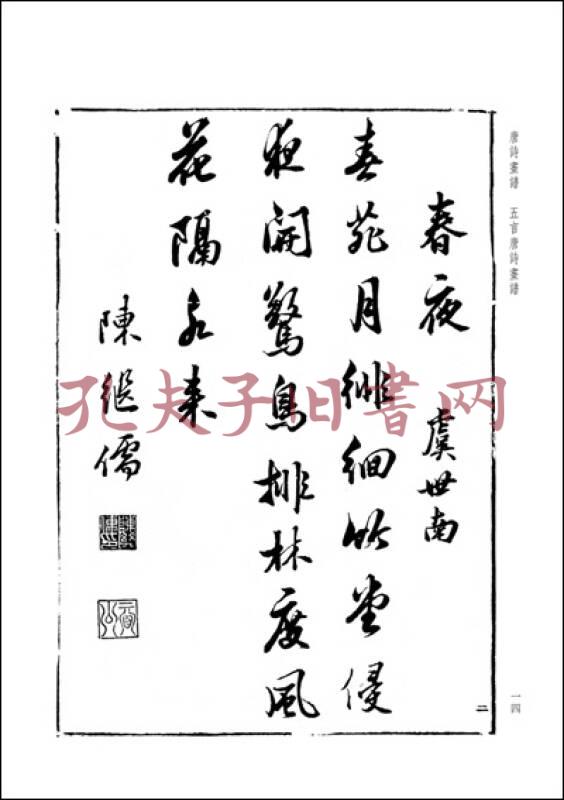 唐詩畫譜 五言唐詩畫譜
一四
春夜 虞世南
二
春苑月徘徊竹堂侵
夜開驚鳥排林度風
花隔水来
陳継儒
孔夫子旧书网